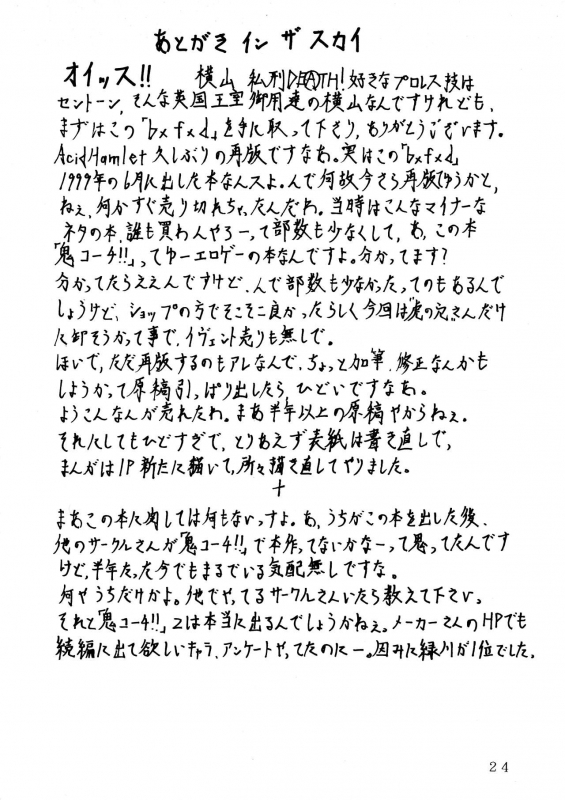 あとがき イン ザ スカイ
オイッス!! 横山 私刑DEATH!好きなプロレス技は
セントーン、そんな英国王室御用達の横山なんですけれども、
まずはこの「bxfxd」を手に取って下さり、ありがとうございます。
AcidHamlet久しぶりの再版ですなあ。実はこの「bxfxd」
1999年の6月に出した本なんスよ。んで何故今さら再版かゆうと、
ねぇ、何かすぐ売り切れちゃったんだわ。当時はこんなマイナーな
ネタの本、誰も買わんやろーって部数も少なくして、あ、この本
「鬼コーチ!!」ってゆーエロゲーの本なんですよ。分かってます?
分かってたらええんですけど、んで部数も少なかったってのもあるんで
しょうけど、ショップの方でそこそこ良かったらしく今回は"虎の穴"さんだけ
に卸そうかって事で、イヴェント売りも無しで。
ほいで、ただ再版するのもアレなんで、ちょっと加筆、修正なんかも
しようかって原稿引っぱり出したら、ひどいですなあ。
ようこんなんが売れたわ。まあ半年以上の原稿やからねぇ。
それにしてもひどすぎで、とりあえず表紙は書き直しで、
まんがは1P新たに描いて、所々描き直してやりました。
+
まあこの本に関しては何もないっすよ。あ、うちがこの本を出した後、
他のサークルさんが「鬼コーチ!!」で本作ってないかなーって思ってたんです
けど、半年たった今でもまるでいる気配無しですな。
何やうちだけかよ。他でやってるサークルさんいたら教えて下さい。
それと「鬼コーチ!!」2は本当に出るんでしょうかねぇ。メーカーさんのHPでも
続編に出て欲しいキャラ、アンケートやってたのにー。因みに緑川が1位でした。
24